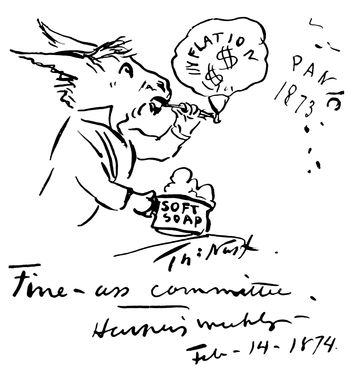 INFLATION
$
$
PANIC
1873
SOFT
SOAP
Th: Nast.
Fine-ass committee
Harper's weekly -
Feb - 14 - 1874.